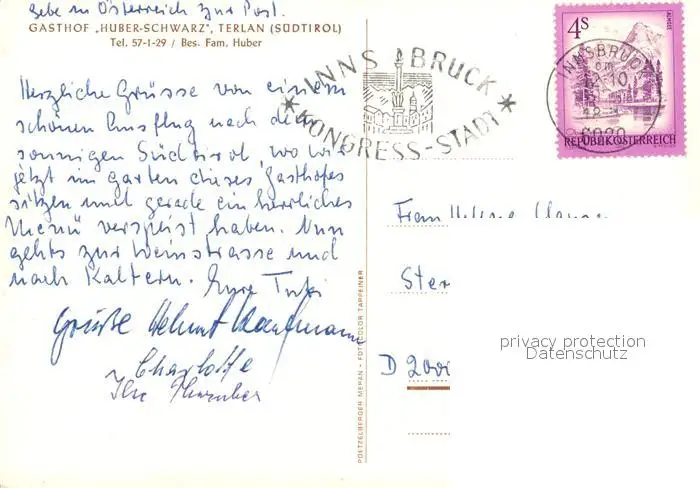 Gebe in Österreich zur Post.
GASTHOF „HUBER-SCHWARZ", TERLAN (SÜDTIROL)
Tel. 57-1-29 / Bes. Fam. Huber
Herzliche Grüsse von einem
schönen Ausflug nach dem
sonnigen Südtirol, wo wir
jetzt im Garten dieses Gasthofes
sitzen und gerade ein herrliches
Menü verspeist haben. Nun
gehts zur Weinstrasse und
nach Kaltern. Eure
Grüße Helmut Kaufmann
Charlotte
INNSBRUCK
KONGRESS-STADT
4S
ALMSEE
REPUBLIK ÖSTERREICH
INNSBRUCK
6020
Frau Helene
Ster
D 2000
POETZELBERGER MERAN - FOTOCOLOR TAPPEINER
privacy protection
Datenschutz